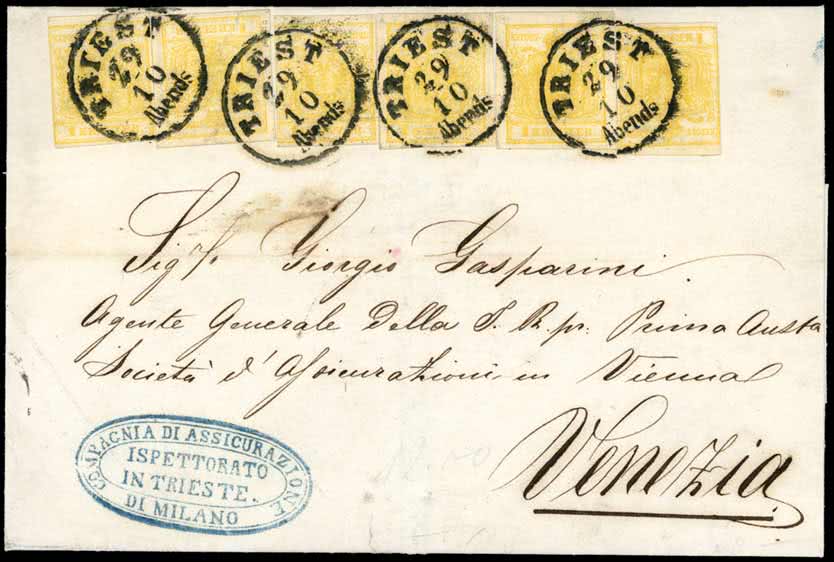 TRIEST
29
10
Abends
TRIEST
29
10
Abends
TRIEST
29
10
Abends
TRIEST
29
10
Abends
Sigr. Giorgio Gasparini.
Agente Generale della I. R. pr. Prima Austa
Società d'Assicurazioni in Vienna
Venezia
COMPAGNIA DI ASSICURAZIONE
ISPETTORATO
IN TRIESTE.
DI MILANO